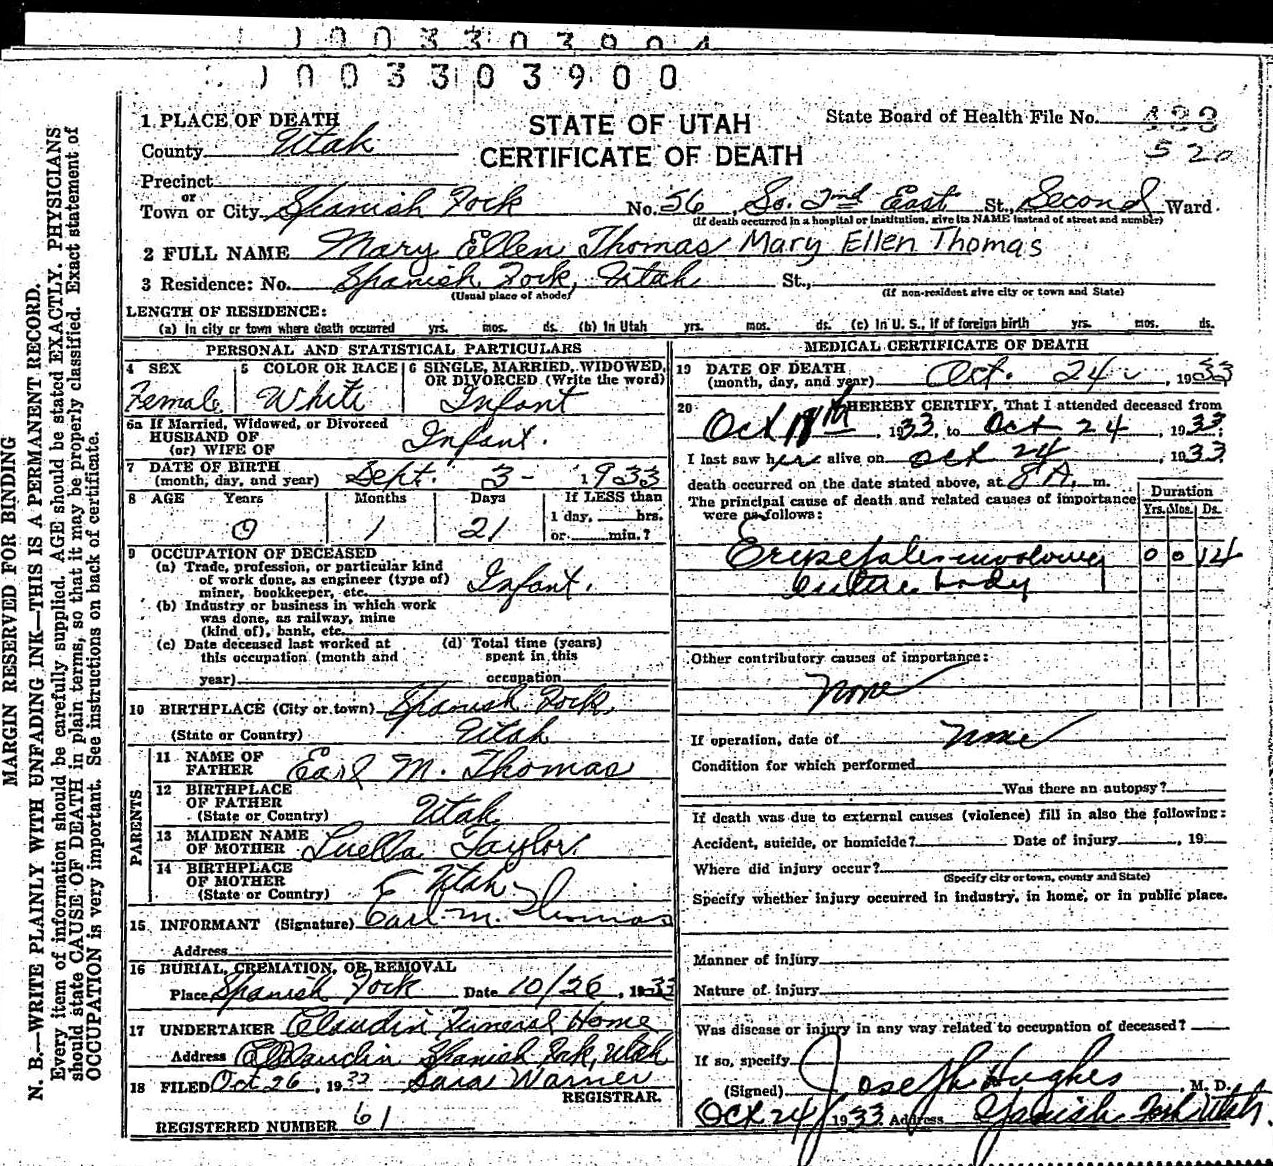 1003303904
1003303900
MARGIN RESERVED FOR BINDING
N. B.—WRITE PLAINLY WITH UNFADING INK—THIS IS A PERMANENT RECORD.
Every item of information should be carefully supplied. AGE should be stated EXACTLY. PHYSICIANS
should state CAUSE OF DEATH in plain terms, so that it may be properly classified. Exact statement of
OCCUPATION is very important. See instructions on back of certificate.
STATE OF UTAH
CERTIFICATE OF DEATH
State Board of Health File No. 488
520
1 PLACE OF DEATH
County Utah
Precinct
or
Town or City Spanish Fork No. 56 So. 2nd East St., Second Ward
(If death occurred in a hospital or institution, give its NAME instead of street and number)
2 FULL NAME Mary Ellen Thomas Mary Ellen Thomas
3 Residence: No. Spanish Fork, Utah St.,
(Usual place of abode) (If non-resident give city or town and State)
LENGTH OF RESIDENCE:
(a) In city or town where death occurred yrs. mos. ds. (b) In Utah yrs. mos. ds. (c) In U. S., if of foreign birth yrs. mos. ds.
PERSONAL AND STATISTICAL PARTICULARS
4 SEX Female
5 COLOR OR RACE White
6 SINGLE, MARRIED, WIDOWED, OR DIVORCED (Write the word) Infant
6a If Married, Widowed, or Divorced
HUSBAND OF
(or) WIFE OF Infant.
7 DATE OF BIRTH
(month, day, and year) Sept. 3- 1933
8 AGE Years Months Days If LESS than
0 1 21 1 day, hrs.
or min.?
9 OCCUPATION OF DECEASED
(a) Trade, profession, or particular kind
of work done, as engineer (type of)
miner, bookkeeper, etc. Infant.
(b) Industry or business in which work
was done, as railway, mine
(kind of), bank, etc.
(c) Date deceased last worked at
this occupation (month and
year)
(d) Total time (years)
spent in this
occupation
10 BIRTHPLACE (City or town) Spanish Fork,
(State or Country) Utah
PARENTS
11 NAME OF
FATHER Earl M. Thomas
12 BIRTHPLACE
OF FATHER
(State or Country) Utah
13 MAIDEN NAME
OF MOTHER Luella Taylor.
14 BIRTHPLACE
OF MOTHER
(State or Country) Utah
15 INFORMANT (Signature) Earl M. Thomas
Address
16 BURIAL, CREMATION, OR REMOVAL
Place Spanish Fork Date 10/26, 1933
17 UNDERTAKER Claudin Funeral Home
Address Claudin Spanish Fork, Utah
18 FILED Oct 26, 1933 Sara Warner
REGISTRAR.
REGISTERED NUMBER 61
MEDICAL CERTIFICATE OF DEATH
19 DATE OF DEATH
(month, day, and year) Oct. 24, 1933
20 I HEREBY CERTIFY, That I attended deceased from
Oct 18th, 1933, to Oct 24, 1933.
I last saw her alive on Oct 24, 1933
death occurred on the date stated above, at 8 A. m.
The principal cause of death and related causes of importance
were as follows:
Duration
Yrs. Mos. Ds.
Erysepales involving 0 0 14
entire body
Other contributory causes of importance:
None
If operation, date of None
Condition for which performed
Was there an autopsy?
If death was due to external causes (violence) fill in also the following:
Accident, suicide, or homicide? Date of injury , 19
Where did injury occur?
(Specify city or town, county and State)
Specify whether injury occurred in industry, in home, or in public place.
Manner of injury
Nature of injury
Was disease or injury in any way related to occupation of deceased?
If so, specify
(Signed) Joseph Hughes, M. D.
Oct 24, 1933 Address Spanish Fork Utah.